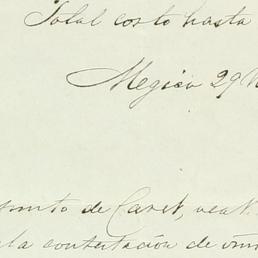 Total costo hasta
Megico 29
de Caret,
la contestación de